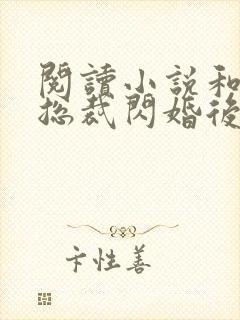 閱讀小說和
總裁閃婚後
卞性善